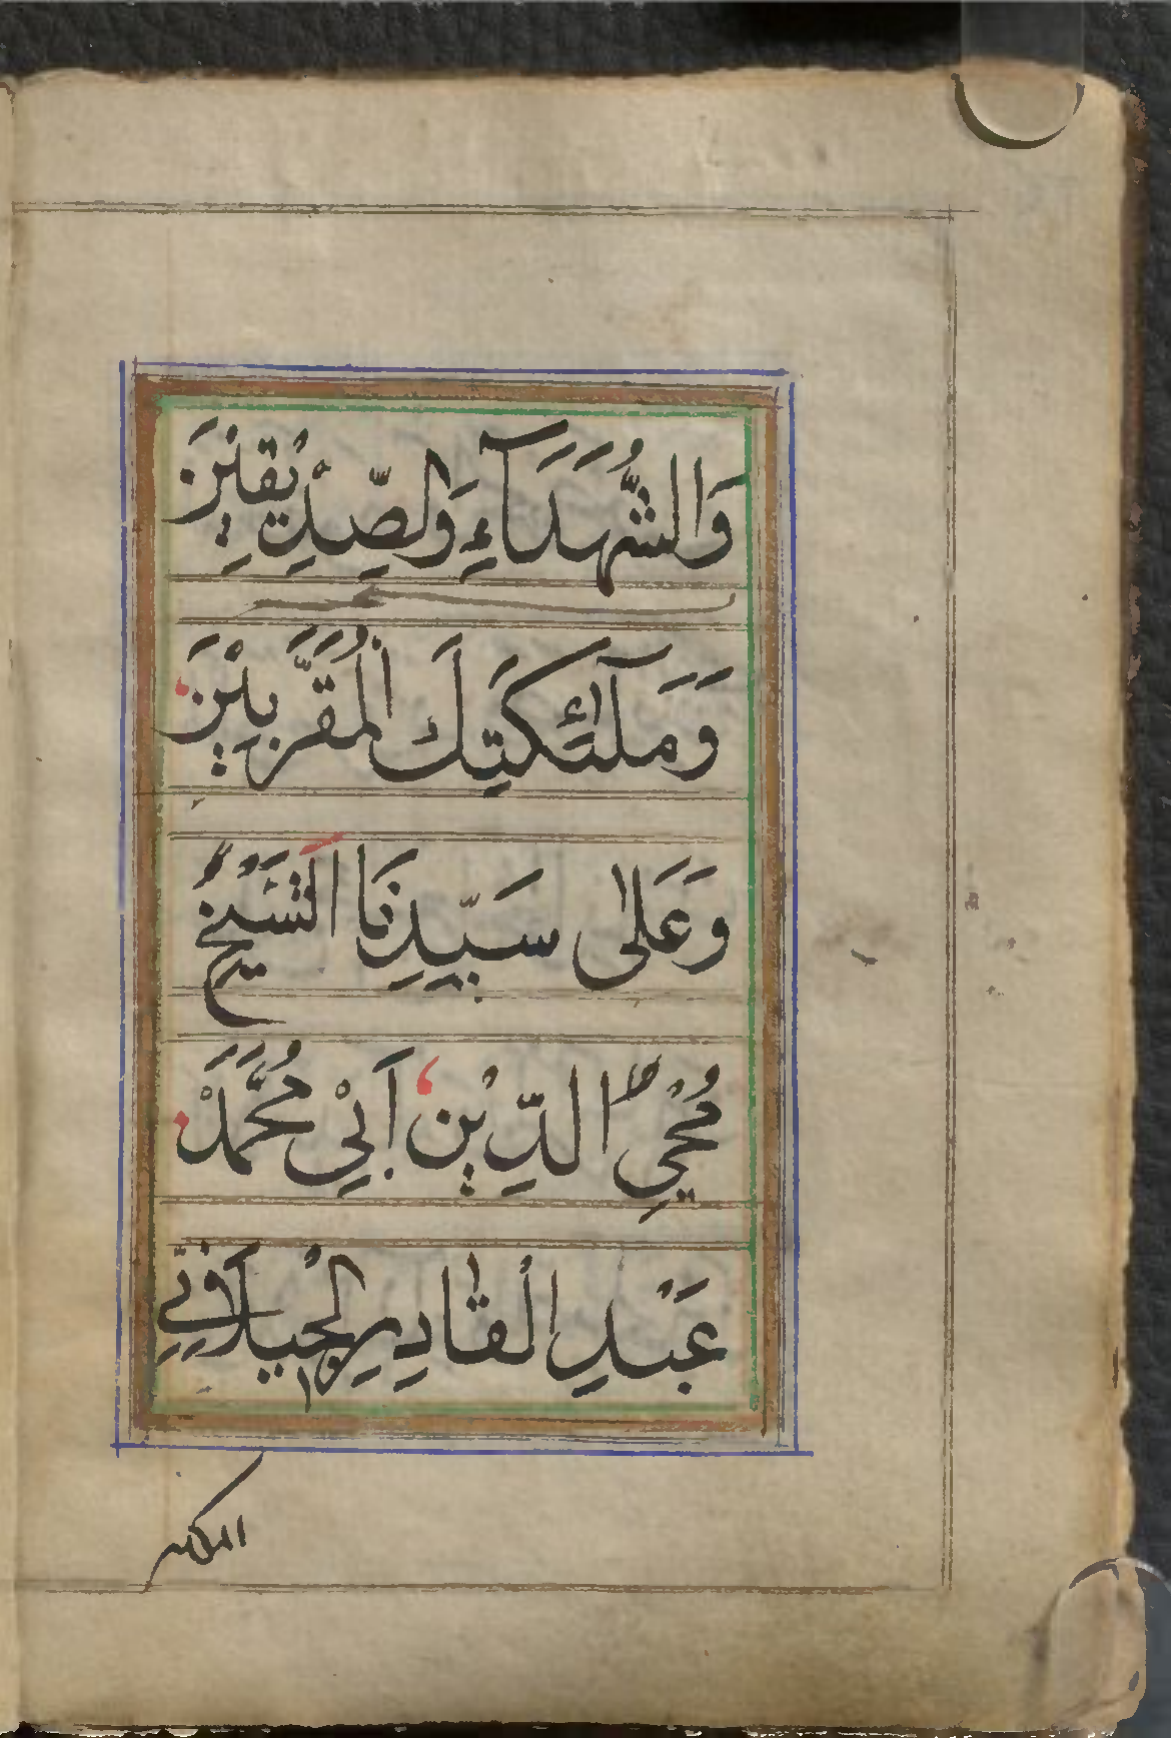 وَالشُّهَدَآءِ وَالصِّدِّيْقِيْنَ
وَمَلٰٓئِكَتِكَ الْمُقَرَّبِيْنَ
وَعَلٰى سَيِّدِنَا الشَّيْخِ
مُحْيِ الدِّيْنِ اَبِيْ مُحَمَّدْ
عَبْدِ الْقَادِرِ الْجِيْلَانِيِّ
المكين